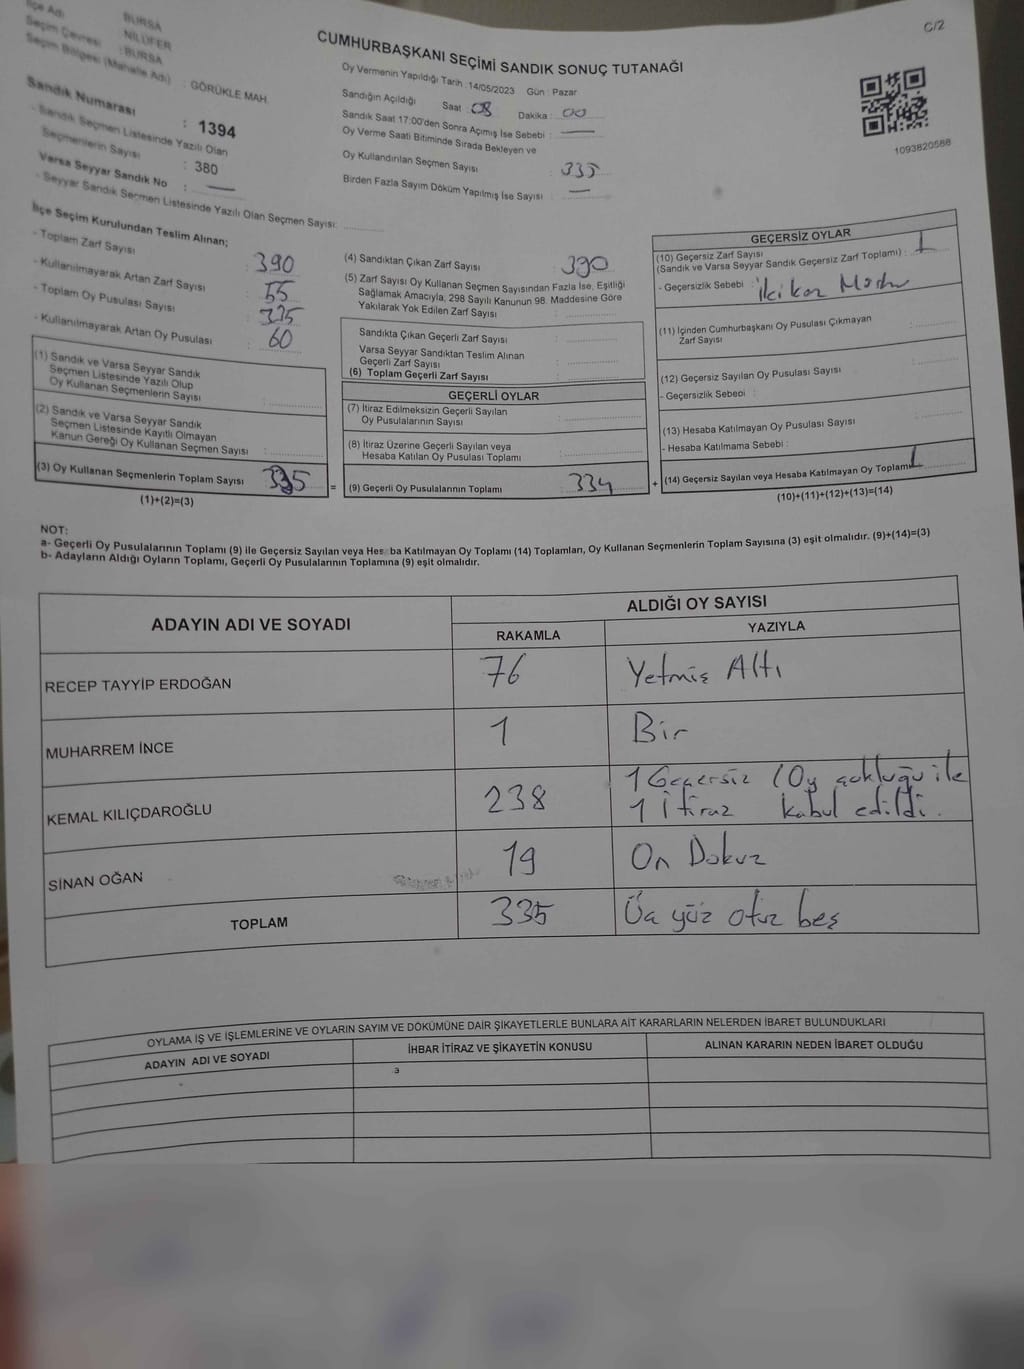 C/2
İlçe Adı : BURSA
Seçim Çevresi : NİLÜFER
Seçim Bölgesi (Mahalle Adı) : BURSA
: GÖRÜKLE MAH.
Sandık Numarası : 1394
- Sandık Seçmen Listesinde Yazılı Olan
Seçmenlerin Sayısı : 380
Varsa Seyyar Sandık No :
- Seyyar Sandık Seçmen Listesinde Yazılı Olan Seçmen Sayısı:
CUMHURBAŞKANI SEÇİMİ SANDIK SONUÇ TUTANAĞI
Oy Vermenin Yapıldığı Tarih : 14/05/2023 Gün : Pazar
Sandığın Açıldığı Saat : 08 Dakika : 00
Sandık Saat 17:00'den Sonra Açımış İse Sebebi :
Oy Verme Saati Bitiminde Sırada Bekleyen ve
Oy Kullandırılan Seçmen Sayısı : 335
Birden Fazla Sayım Döküm Yapılmış İse Sayısı :
1093820588
İlçe Seçim Kurulundan Teslim Alınan;
- Toplam Zarf Sayısı : 390
- Kullanılmayarak Artan Zarf Sayısı : 55
- Toplam Oy Pusulası Sayısı : 395
- Kullanılmayarak Artan Oy Pusulası : 60
(1) Sandık ve Varsa Seyyar Sandık
Seçmen Listesinde Yazılı Olup
Oy Kullanan Seçmenlerin Sayısı :
(2) Sandık ve Varsa Seyyar Sandık
Seçmen Listesinde Kayıtlı Olmayan
Kanun Gereği Oy Kullanan Seçmen Sayısı :
(3) Oy Kullanan Seçmenlerin Toplam Sayısı 335
(1)+(2)=(3)
=
(4) Sandıktan Çıkan Zarf Sayısı : 390
(5) Zarf Sayısı Oy Kullanan Seçmen Sayısından Fazla İse, Eşitliği
Sağlamak Amacıyla, 298 Sayılı Kanunun 98. Maddesine Göre
Yakılarak Yok Edilen Zarf Sayısı :
Sandıkta Çıkan Geçerli Zarf Sayısı :
Varsa Seyyar Sandıktan Teslim Alınan
Geçerli Zarf Sayısı :
(6) Toplam Geçerli Zarf Sayısı :
GEÇERLİ OYLAR
(7) İtiraz Edilmeksizin Geçerli Sayılan
Oy Pusulalarının Sayısı :
(8) İtiraz Üzerine Geçerli Sayılan veya
Hesaba Katılan Oy Pusulası Toplamı :
(9) Geçerli Oy Pusulalarının Toplamı : 334
+
GEÇERSİZ OYLAR
(10) Geçersiz Zarf Sayısı
(Sandık ve Varsa Seyyar Sandık Geçersiz Zarf Toplamı) : 1
- Geçersizlik Sebebi :
(11) İçinden Cumhurbaşkanı Oy Pusulası Çıkmayan
Zarf Sayısı :
(12) Geçersiz Sayılan Oy Pusulası Sayısı :
- Geçersizlik Sebebi :
(13) Hesaba Katılmayan Oy Pusulası Sayısı :
- Hesaba Katılmama Sebebi :
(14) Geçersiz Sayılan veya Hesaba Katılmayan Oy Toplamı 1
(10)+(11)+(12)+(13)=(14)
NOT:
a- Geçerli Oy Pusulalarının Toplamı (9) ile Geçersiz Sayılan veya Hesaba Katılmayan Oy Toplamı (14) Toplamları, Oy Kullanan Seçmenlerin Toplam Sayısına (3) eşit olmalıdır. (9)+(14)=(3)
b- Adayların Aldığı Oyların Toplamı, Geçerli Oy Pusulalarının Toplamına (9) eşit olmalıdır.
ADAYIN ADI VE SOYADI ALDIĞI OY SAYISI
RAKAMLA YAZIYLA
RECEP TAYYİP ERDOĞAN 76 Yetmiş Altı
MUHARREM İNCE 1 Bir
KEMAL KILIÇDAROĞLU 238 1 Geçersiz (Oy çokluğu ile
1 İtiraz kabul edildi.
SİNAN OĞAN 19 On Dokuz
TOPLAM 335 Üç yüz otuz beş
OYLAMA İŞ VE İŞLEMLERİNE VE OYLARIN SAYIM VE DÖKÜMÜNE DAİR ŞİKAYETLERLE BUNLARA AİT KARARLARIN NELERDEN İBARET BULUNDUKLARI
ADAYIN ADI VE SOYADI İHBAR İTİRAZ VE ŞİKAYETİN KONUSU ALINAN KARARIN NEDEN İBARET OLDUĞU
a